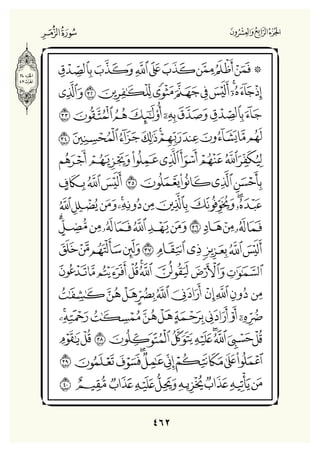 الجزء الرابع والعشرون سورة الزمر
۞ فَمَنْ أَظْلَمُ مِمَّن كَذَبَ عَلَى ٱللَّهِ وَكَذَّبَ بِٱلصِّدْقِ
إِذْ جَآءَهُۥٓ ۚ أَلَيْسَ فِى جَهَنَّمَ مَثْوًى لِّلْكَٰفِرِينَ ٣٢ وَٱلَّذِى
جَآءَ بِٱلصِّدْقِ وَصَدَّقَ بِهِۦٓ ۙ أُو۟لَٰٓئِكَ هُمُ ٱلْمُتَّقُونَ ٣٣
لَهُم مَّا يَشَآءُونَ عِندَ رَبِّهِمْ ۚ ذَٰلِكَ جَزَآءُ ٱلْمُحْسِنِينَ ٣٤
لِيُكَفِّرَ ٱللَّهُ عَنْهُمْ أَسْوَأَ ٱلَّذِى عَمِلُوا۟ وَيَجْزِيَهُمْ أَجْرَهُم
بِأَحْسَنِ ٱلَّذِى كَانُوا۟ يَعْمَلُونَ ٣٥ أَلَيْسَ ٱللَّهُ بِكَافٍ
عَبْدَهُۥ ۖ وَيُخَوِّفُونَكَ بِٱلَّذِينَ مِن دُونِهِۦ ۚ وَمَن يُضْلِلِ ٱللَّهُ
فَمَا لَهُۥ مِنْ هَادٍ ٣٦ وَمَن يَهْدِ ٱللَّهُ فَمَا لَهُۥ مِن مُّضِلٍّ ۗ
أَلَيْسَ ٱللَّهُ بِعَزِيزٍ ذِى ٱنتِقَامٍ ٣٧ وَلَئِن سَأَلْتَهُم مَّنْ خَلَقَ
ٱلسَّمَٰوَٰتِ وَٱلْأَرْضَ لَيَقُولُنَّ ٱللَّهُ ۚ قُلْ أَفَرَءَيْتُم مَّا تَدْعُونَ
مِن دُونِ ٱللَّهِ إِنْ أَرَادَنِىَ ٱللَّهُ بِضُرٍّ هَلْ هُنَّ كَٰشِفَٰتُ
ضُرِّهِۦٓ أَوْ أَرَادَنِى بِرَحْمَةٍ هَلْ هُنَّ مُمْسِكَٰتُ رَحْمَتِهِۦ ۚ
قُلْ حَسْبِىَ ٱللَّهُ ۖ عَلَيْهِ يَتَوَكَّلُ ٱلْمُتَوَكِّلُونَ ٣٨ قُلْ يَٰقَوْمِ
ٱعْمَلُوا۟ عَلَىٰ مَكَانَتِكُمْ إِنِّى عَٰمِلٌ ۖ فَسَوْفَ تَعْلَمُونَ ٣٩
مَن يَأْتِيهِ عَذَابٌ يُخْزِيهِ وَيَحِلُّ عَلَيْهِ عَذَابٌ مُّقِيمٌ ٤٠
٤٦٢